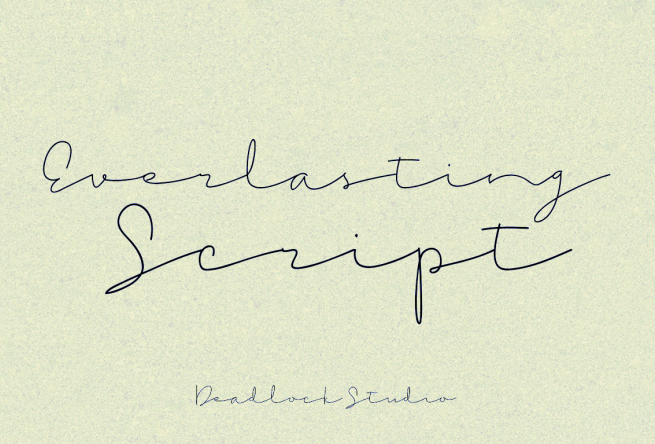 Everlasting
Script
Deadlock Studio